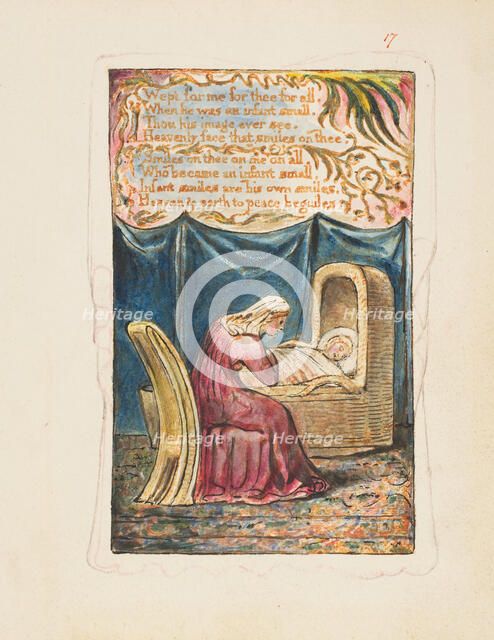 17
Wept for me for thee for all.
When he was an infant small.
Thou his image ever see.
Heavenly face that smiles on thee.
Smiles on thee on me on all
Who became an infant small
Infant smiles are his own smiles.
Heaven & earth to peace beguiles.
Heritage
Heritage
Heritage
Heritage
Heritage
Heritage